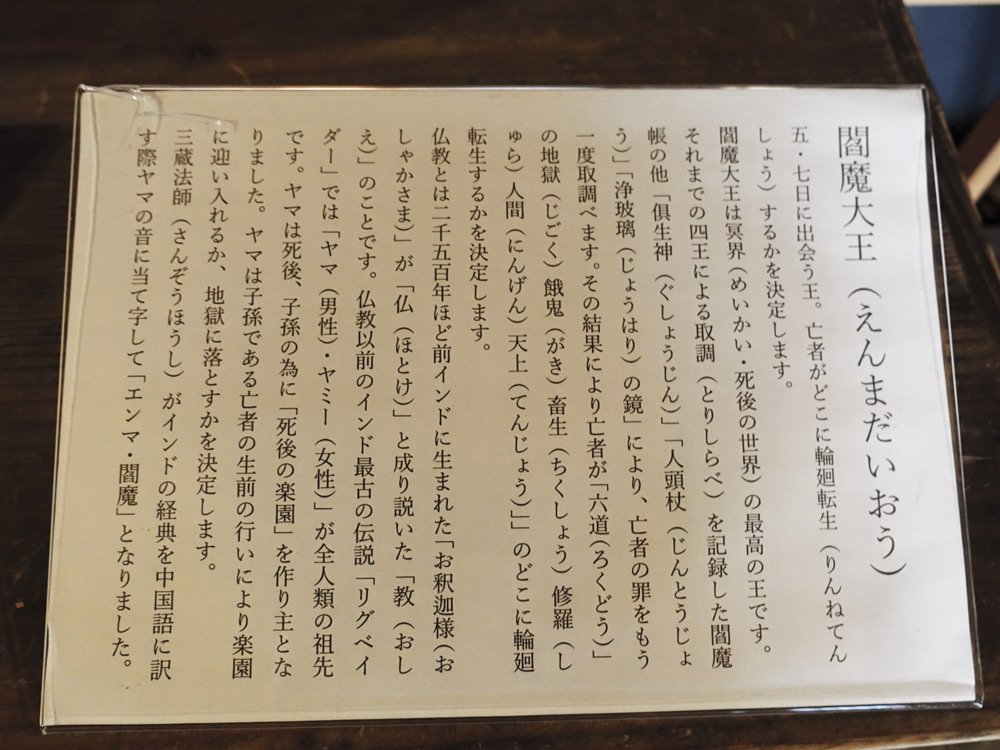 閻魔大王（えんまだいおう）
五・七日に出会う王。亡者がどこに輪廻転生（りんねてん
しょう）するかを決定します。
閻魔大王は冥界（めいかい・死後の世界）の最高の王です。
それまでの四王による取調（とりしらべ）を記録した閻魔
帳の他「倶生神（ぐしょうじん）」「人頭杖（じんとうじょ
う）」「浄玻璃（じょうはり）の鏡」により、亡者の罪をもう
一度取調べます。その結果により亡者が「六道（ろくどう）」
の地獄（じごく）餓鬼（がき）畜生（ちくしょう）修羅（し
ゅら）人間（にんげん）天上（てんじょう）」」のどこに輪廻
転生するかを決定します。
仏教とは二千五百年ほど前インドに生まれた「お釈迦様（お
しゃかさま）」が「仏（ほとけ）」と成り説いた「教（おし
え）」のことです。仏教以前のインド最古の伝説「リグベイ
ダー」では「ヤマ（男性）・ヤミー（女性）」が全人類の祖先
です。ヤマは死後、子孫の為に「死後の楽園」を作り主とな
りました。ヤマは子孫である亡者の生前の行いにより楽園
に迎い入れるか、地獄に落とすかを決定します。
三蔵法師（さんぞうほうし）がインドの経典を中国語に訳
す際ヤマの音に当て字して「エンマ・閻魔」となりました。